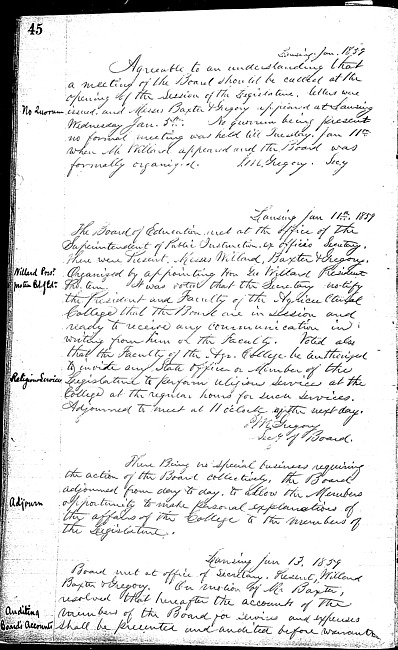 45
Lansing, Jan. 1859
Agreeable to an understanding that
a meeting of the Board should be called at the
opening of the Session of the Legislature, letters were
No Quorum
issued, and Messrs Baxter & Gregory appeared at Lansing
Wednesday Jan. 5th. No quorum being present
no formal meeting was held till Tuesday, Jan 11th
when Mr Willard appeared and the Board was
formally organized. J.M. Gregory. Secy
Lansing Jan 11th, 1859
The Board of Education met at the office of the
Superintendent of Public Instruction, ex officio Secretary.
There were Present, Messrs Willard, Baxter & Gregory.
Willard Pres.
pro tem Bd of Ed.
Organized by appointing Hon Geo Willard President
Pro tem. It was voted that the Secretary notify
the President and Faculty of the Agricultural
College that the Board are in session and
ready to receive any communication in
writing from him or the Faculty. Voted also
that the Faculty of the Agr. College be authorized
to invite any State officer or Member of the
Religious Services
Legislature to perform religious services at the
College at the regular hours for such services.
Adjourned to meet at 11 o'clock of the next day.
J M Gregory
Secy of Board.
There Being no special business requiring
the action of the Board collectively, the Board
adjourned from day to day, to allow the Members
Adjourn
opportunity to make personal explanations of
the affairs of the College to the members of
the Legislature.
Lansing Jan 13, 1859
Board met at office of Secretary. Present, Willard
Baxter & Gregory. On motion of Mr Baxter,
resolved that hereafter the accounts of the
Auditing
Board's Accounts
members of the Board for services and expenses
shall be presented and audited before warrants